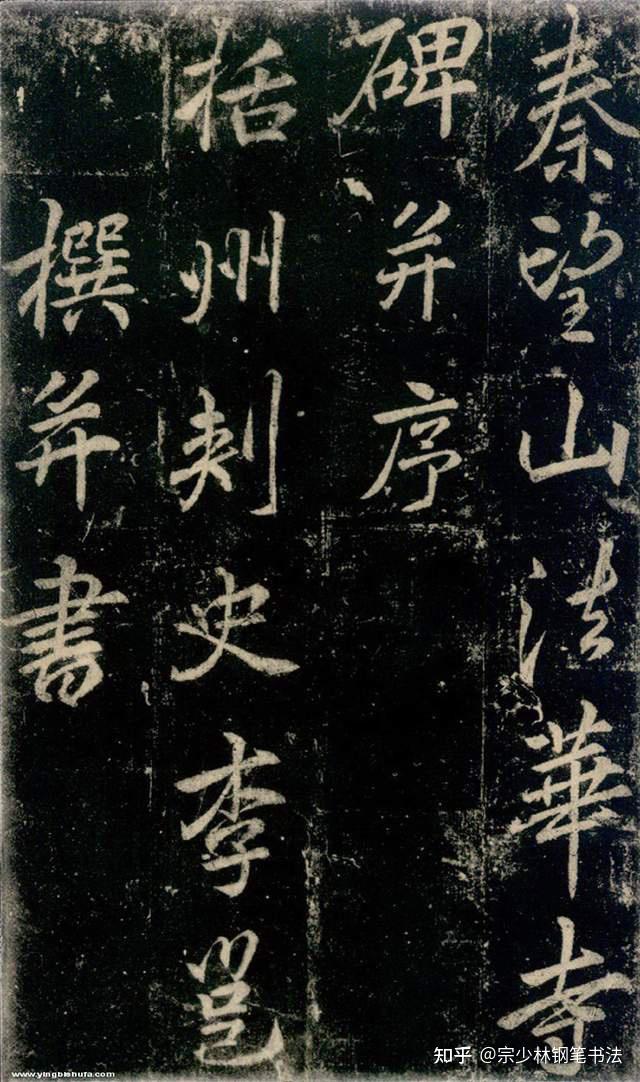 秦望山法華寺
碑并序
括州刺史李邕
撰并書
知乎 @宗少林钢笔书法
www.yingbishufa.com